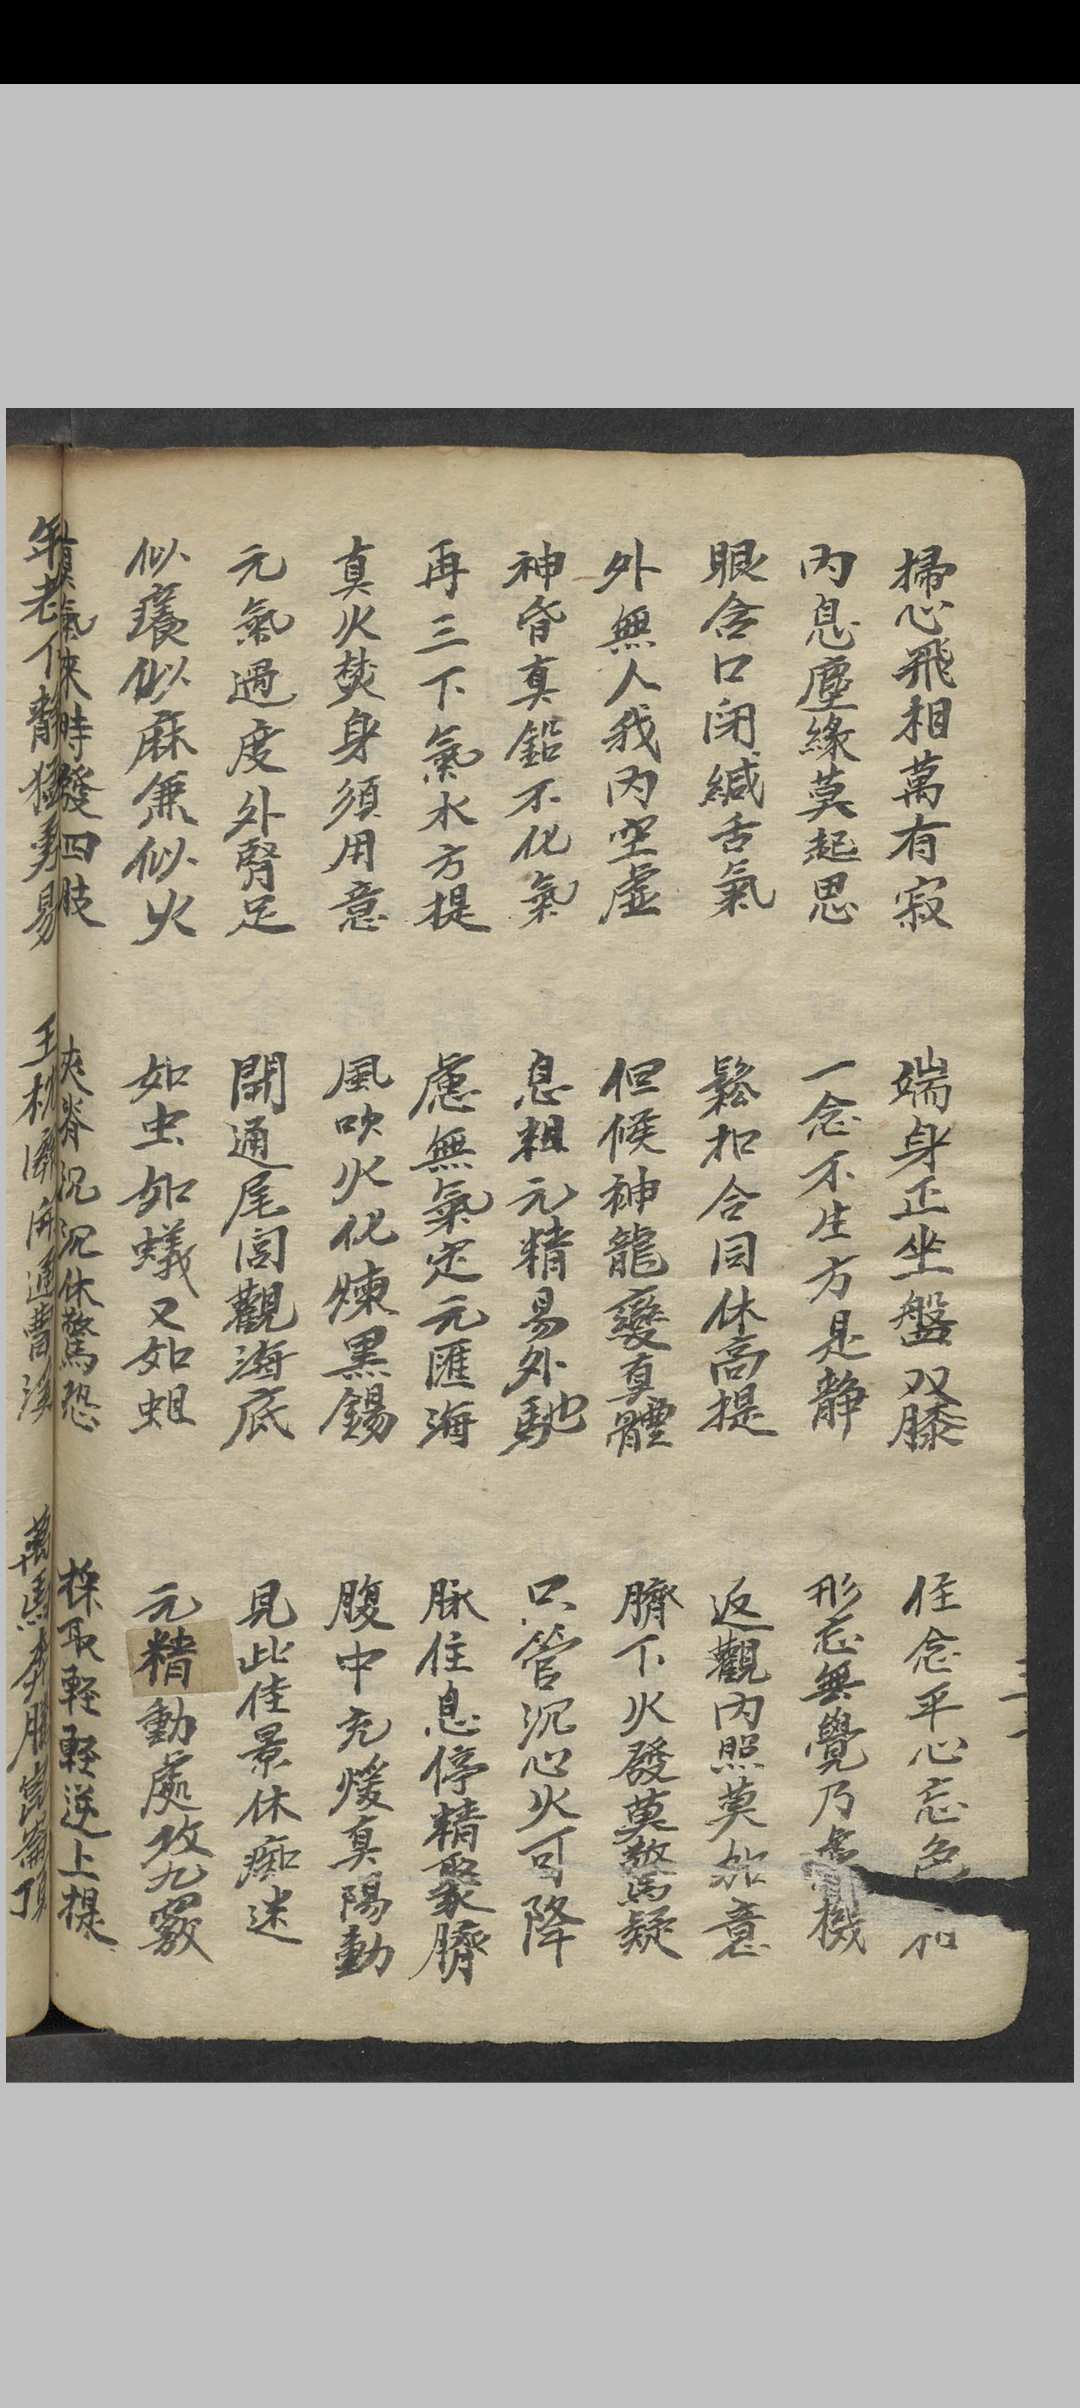 掃心飛相萬有寂　端身正坐盤双膝　住念平心忘色
內息塵緣莫起思　一念不生方是静　形忘無覺乃機
眼含口闭緘舌氣　鬆扣合同休高提　返觀內照莫加意
外無人我內空虛　但候神龍變真體　臍下火發莫驚疑
神昏真鉛不化氣　息粗元精易外馳　只管沉心火可降
再三下氣水方提　慮無氣定元匯海　脉住息停精聚臍
真火焚身須用意　風吹火化煉黑錫　腹中充煖真陽動
元氣過度外腎足　開通尾閭觀海底　見此佳景休痴迷
似癢似麻兼似火　如虫如蟻又如蛆　元精動處攻九竅
真氣來時發四肢　夾脊沉沉休驚恐　採取輕輕逆上提
年老静猛勇易　開通曹溪　萬馬奔騰崑崙頂